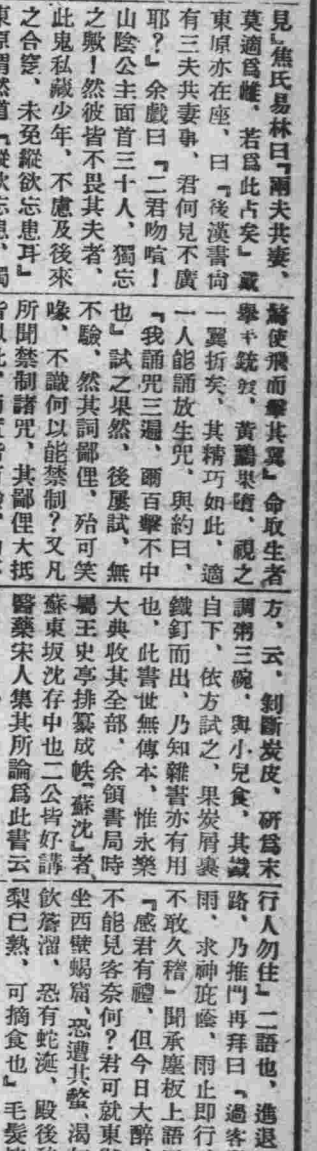 見』焦氏易林曰『兩夫共妻、
莫適爲雌、若爲此占矣』戴
東原亦在座、曰『後漢書尙
有三夫共妻事、君何見不廣
耶？』余戲曰『二君勿喧！
山陰公主面首三十人、獨忘
之歟！然彼皆不畏其夫者、
此鬼私藏少年、不慮及後來
之合窆、未免縱欲忘患耳』
東原喟然道『縱欲忘患、獨
驚使飛而擊其翼』命取生者
擧手銃發、黃鸝果墮、視之
一翼折矣、其精巧如此、適
一人能誦放生咒、與約曰、
『我誦咒三遍、爾百擊不中
也』試之果然、後屢試、無
不驗、然其詞鄙俚、殆可笑
喙、不識何以能禁制？又凡
所聞禁制諸咒、其鄙俚大抵
方、云、剝斷炭皮、研爲末
調粥三碗、與小兒食、其鐵
自下、依方試之、果炭屑裹
鐵釘而出、乃知雜書亦有用
也、此書世無傳本、惟永樂
大典收其全部、余領書局時
屬王史亭排纂成帙『蘇沈』者、
蘇東坂沈存中也二公皆好講
醫藥宋人集其所論爲此書云
行人勿住』二語也、進退
路、乃推門再拜曰『過客
雨、求神庇蔭、雨止即行
不敢久稽』聞承塵板上語
『感君有禮、但今日大醉
不能見客奈何？君可就東
坐西壁蝎窟、恐遭其螫、渴
飲簷溜、恐有蛇涎、殿後
梨已熟、可摘食也』毛髮